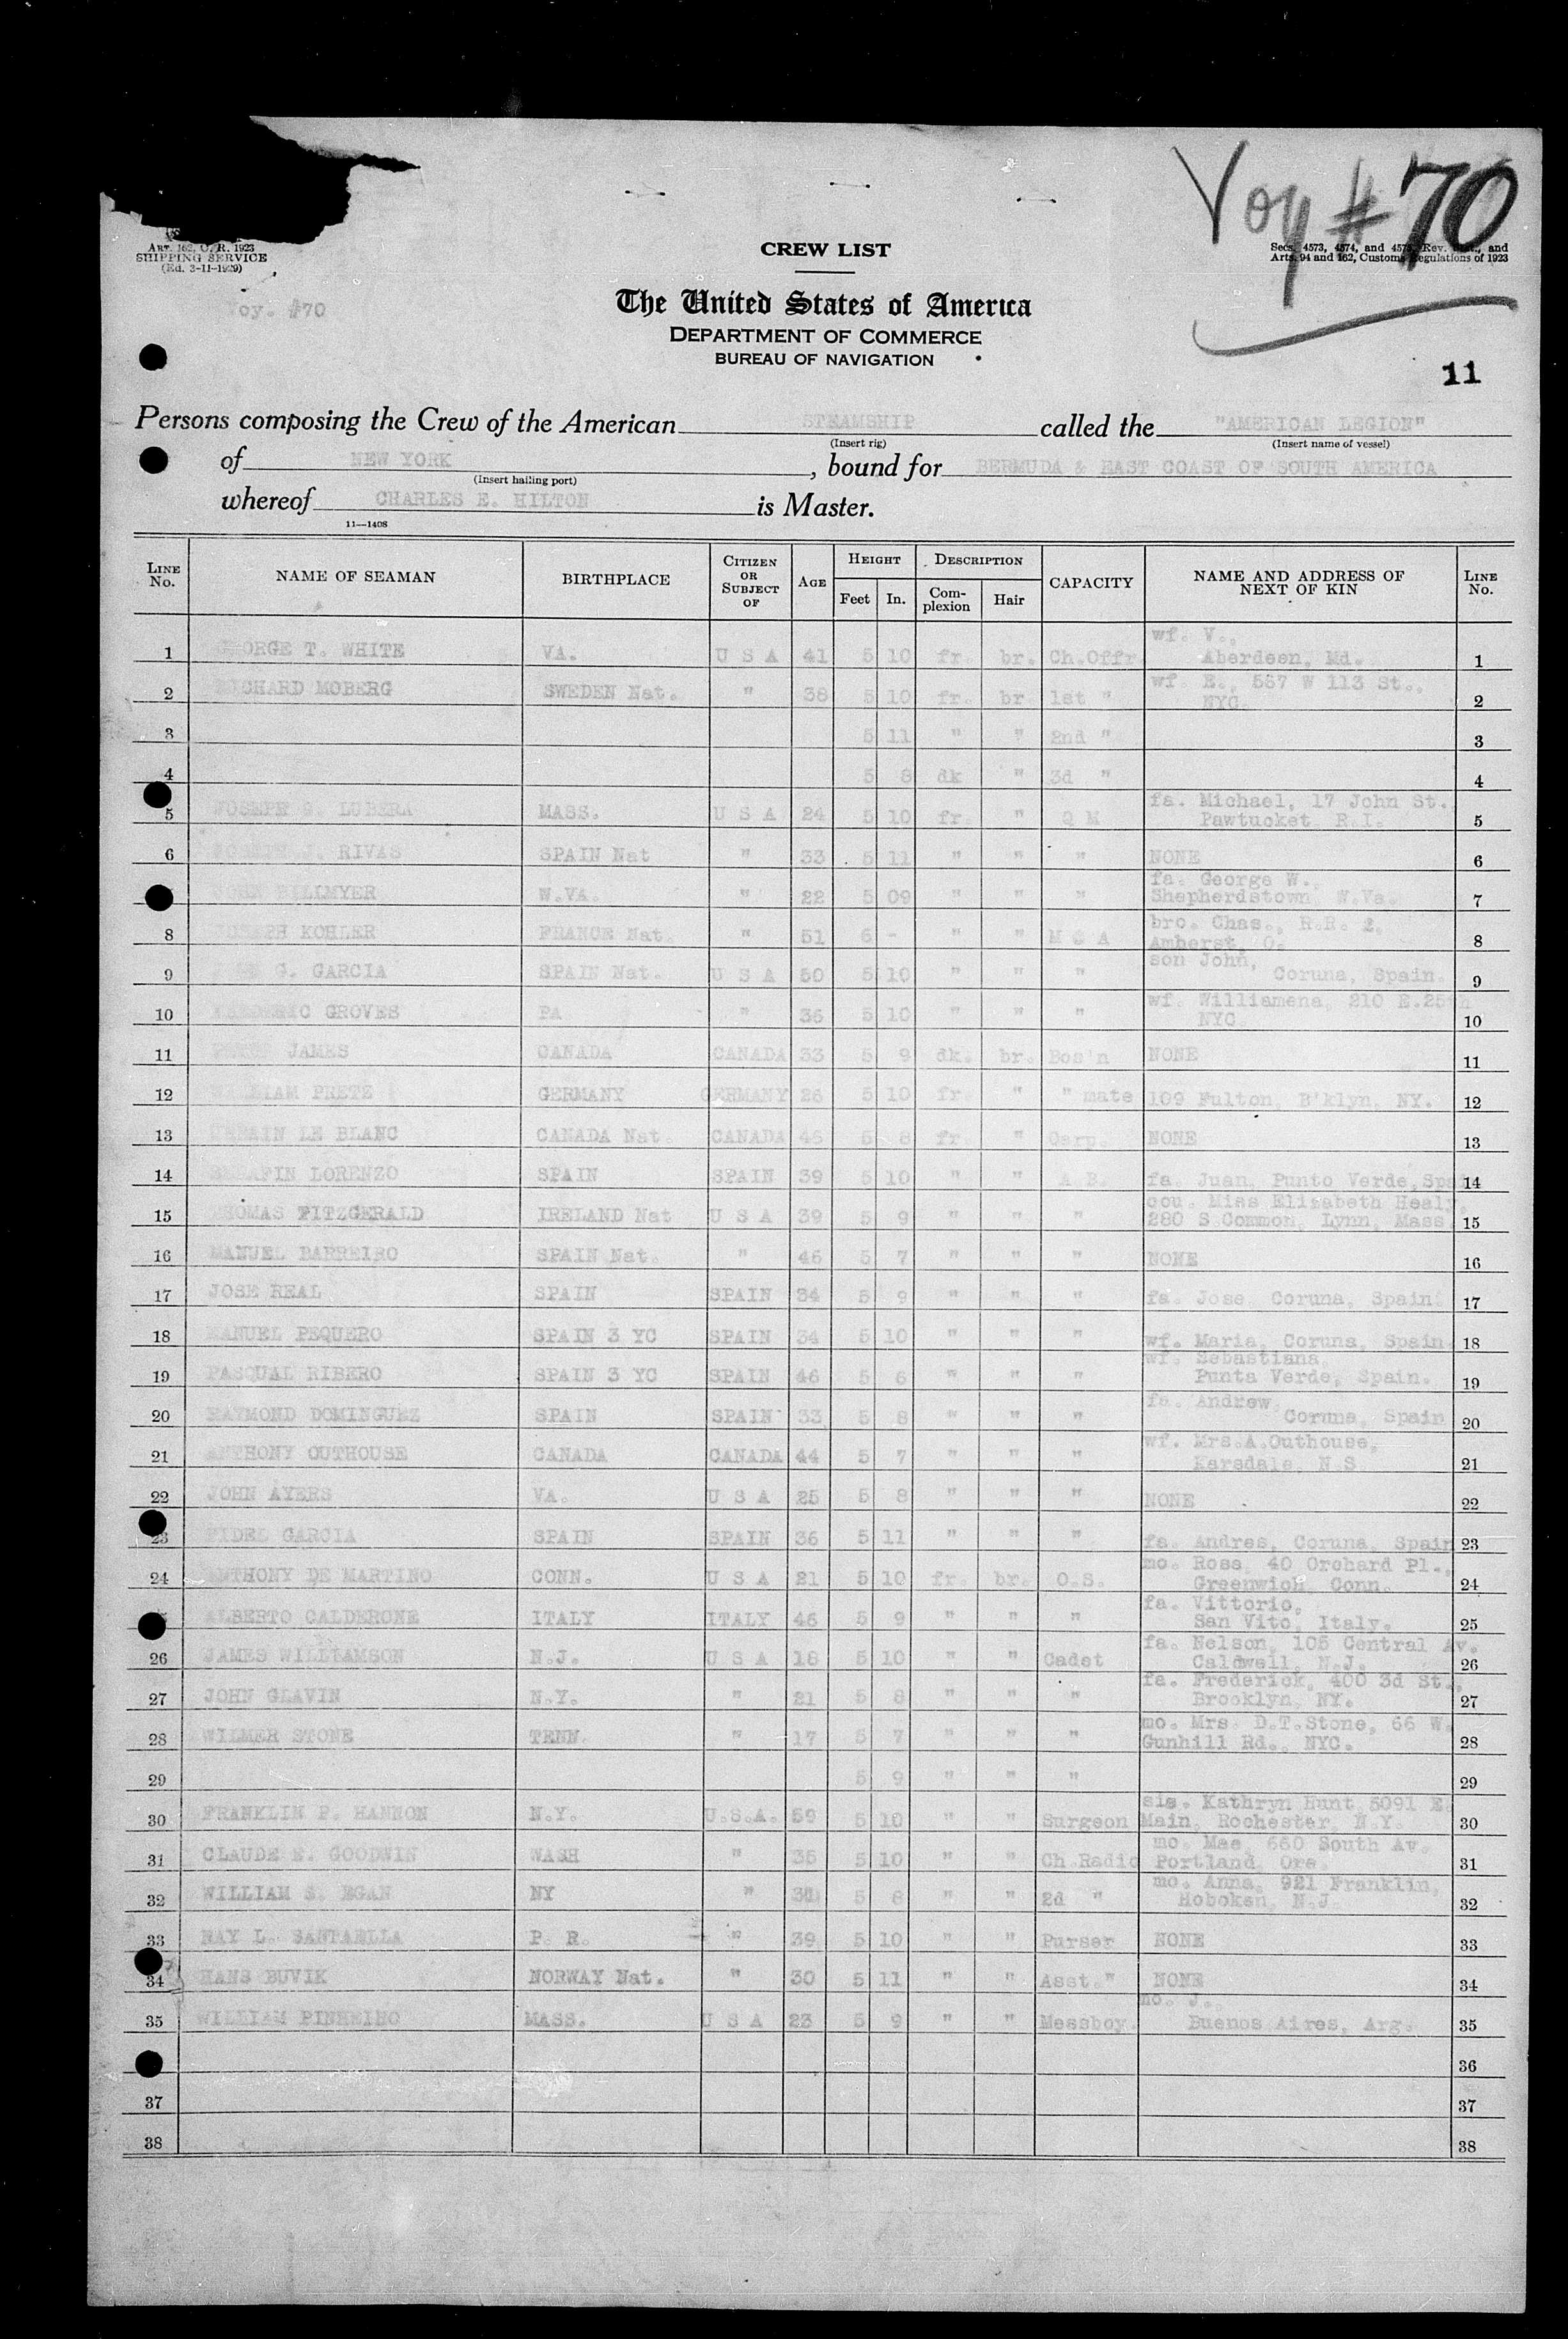 Voy #70
ART. 162, C. R. 1923
SHIPPING SERVICE
(Ed. 3-11-1929)
Voy. #70
CREW LIST
Secs. 4573, 4574, and 4575, Rev. Stat., and
Arts. 94 and 162, Customs Regulations of 1923
The United States of America
DEPARTMENT OF COMMERCE
BUREAU OF NAVIGATION
11
Persons composing the Crew of the American STEAMSHIP called the "AMERICAN LEGION"
(Insert rig) (Insert name of vessel)
of NEW YORK, bound for BERMUDA & EAST COAST OF SOUTH AMERICA
(Insert hailing port)
whereof CHARLES E. HILTON is Master.
11—1408
LINE No. NAME OF SEAMAN BIRTHPLACE CITIZEN OR SUBJECT OF AGE HEIGHT Feet In. DESCRIPTION Complexion Hair CAPACITY NAME AND ADDRESS OF NEXT OF KIN LINE No.
1 GEORGE T. WHITE VA. U S A 41 5 10 fr. br. Ch.Offr wf. V., Aberdeen, Md. 1
2 RICHARD MOBERG SWEDEN Nat. " 38 5 10 fr. br 1st " wf. E., 567 W 113 St., NYC. 2
3 5 11 " " 2nd " 3
4 5 8 dk " 3d " 4
5 LUBERA MASS. U S A 24 5 10 fr. " Q M fa. Michael, 17 John St. Pawtucket R.I. 5
6 J. RIVAS SPAIN Nat " 33 5 11 " " " NONE 6
JOHN BILLMYER W.VA. " 22 5 09 " " " fa. George W., Shepherdstown, W.Va. 7
8 JOSEPH KOHLER FRANCE Nat. " 51 6 - " " M @ A bro. Chas., R.R. 2. Amherst, O. 8
9 G. GARCIA SPAIN Nat. U S A 50 5 10 " " " son John, Coruna, Spain. 9
10 FREDERIC GROVES PA " 36 5 10 " " " wf. Williamena, 210 E.25th NYC 10
11 JAMES CANADA CANADA 33 5 9 dk. br. Bos'n NONE 11
12 WILLIAM PRETZ GERMANY GERMANY 26 5 10 fr. " " mate 109 Fulton, B'klyn, NY. 12
13 LE BLANC CANADA Nat. CANADA 46 5 8 fr. " Carp. NONE 13
14 SERAFIN LORENZO SPAIN SPAIN 39 5 10 " " A.B. fa. Juan, Punto Verde, Spa 14
15 THOMAS FITZGERALD IRELAND Nat U S A 39 5 9 " " " cou. Miss Elizabeth Healy, 280 S.Common, Lynn, Mass 15
16 MANUEL BARREIRO SPAIN Nat. " 46 5 7 " " " NONE 16
17 JOSE REAL SPAIN SPAIN 34 5 9 " " " fa. Jose, Coruna, Spain. 17
18 MANUEL PEQUERO SPAIN 3 YC SPAIN 34 5 10 " " " wf. Maria, Coruna, Spain 18
19 PASQUAL RIBERO SPAIN 3 YC SPAIN 46 5 6 " " " wf. Sebastiana, Punta Verde, Spain. 19
20 RAYMOND DOMINGUEZ SPAIN SPAIN 33 5 8 " " " fa. Andrew, Coruna, Spain 20
21 ANTHONY OUTHOUSE CANADA CANADA 44 5 7 " " " wf. Mrs.A.Outhouse, Karsdale, N.S 21
22 JOHN AYERS VA. U S A 25 5 8 " " " NONE 22
23 FIDEL GARCIA SPAIN SPAIN 36 5 11 " " " fa. Andres, Coruna, Spain 23
24 ANTHONY DE MARTINO CONN. U S A 21 5 10 fr. br. O.S. mo. Rosa, 40 Orchard Pl., Greenwich, Conn. 24
ALBERTO CALDERONE ITALY ITALY 46 5 9 " " " fa. Vittorio, San Vito, Italy. 25
26 JAMES WILLIAMSON N.J. U S A 18 5 10 " " Cadet fa. Nelson, 105 Central Av. Caldwell, N.J. 26
27 JOHN GLAVIN N.Y. " 21 5 8 " " " fa. Frederick, 400 3d St., Brooklyn, NY. 27
28 WILMER STONE TENN. " 17 5 7 " " " mo. Mrs. D.T.Stone, 66 W. Gunhill Rd., NYC. 28
29 5 9 " " " 29
30 FRANKLIN P. HANNON N.Y. U.S.A. 59 5 10 " " Surgeon sis. Kathryn Hunt, 5091 E. Main, Rochester, N.Y. 30
31 CLAUDE E. GOODWIN WASH " 35 5 10 " " Ch Radio mo. Mae, 660 South Av. Portland, Ore. 31
32 WILLIAM S. EGAN NY " 5 8 " " 2d " mo. Anna, 921 Franklin, Hoboken, N.J. 32
33 RAY L. SANTAELLA P. R. " 39 5 10 " " Purser NONE 33
34 HANS BUVIK NORWAY Nat. " 30 5 11 " " Asst." NONE 34
35 WILLIAM PINHEIRO MASS. U S A 23 5 9 " " Messboy. mo. J., Buenos Aires, Arg. 35
36
37 37
38 38